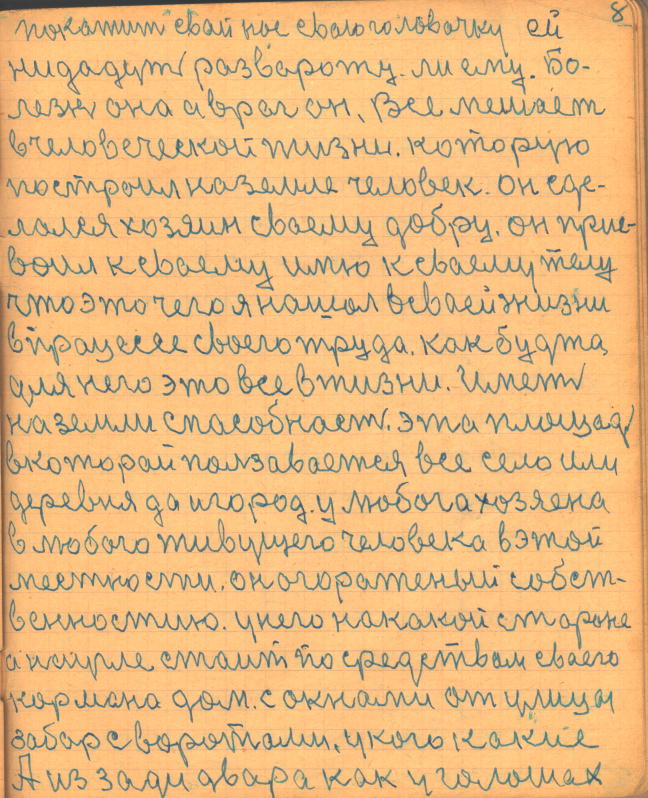 8
покатит свай нос сваюголовачку ей
нидадут развароту. ли ему. Бо-
лезн она а враг он, Все мешает
вчеловеческой жизни. которую
построил на земле человек. он сде-
лался хозяин сваему добру. он прис-
воил к сваему имю к сваему телу
что это чего я нашол в сваей жизни
в працессе своего труда. как будта
для него это все в жизни. Имет
на земли спасобнаст. эта площад
в которай ползавается все село или
деревня да и город. у любога хозяена
в любого живущего человека в этой
местности. он огороженый собст-
венностию. у него на какой стороне
стаит по средствам сваего
кармана дом. с окнами от улицы
забар с воротами. у кого какие
А из зади двара как у